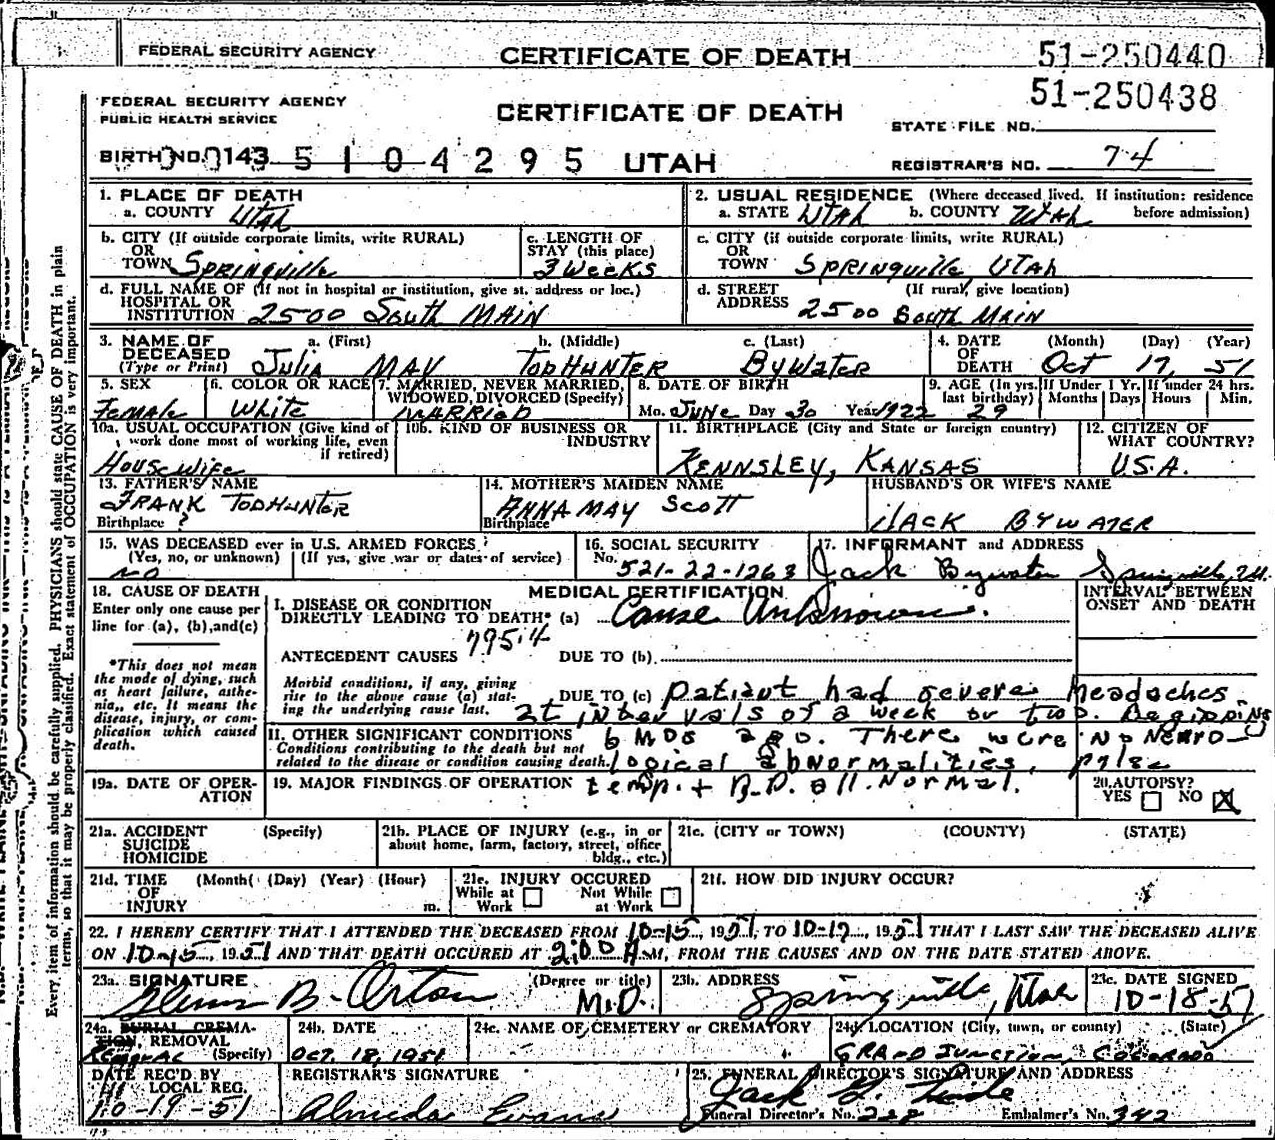 FEDERAL SECURITY AGENCY CERTIFICATE OF DEATH 51-250440
51-250438
FEDERAL SECURITY AGENCY
PUBLIC HEALTH SERVICE
CERTIFICATE OF DEATH
STATE FILE NO.
BIRTH NO. 143 5104295 UTAH REGISTRAR'S NO. 74
1. PLACE OF DEATH
a. COUNTY Utah
2. USUAL RESIDENCE (Where deceased lived. If institution: residence before admission)
a. STATE Utah b. COUNTY Utah
b. CITY (If outside corporate limits, write RURAL)
OR
TOWN Springville
c. LENGTH OF
STAY (this place)
3 Weeks
c. CITY (if outside corporate limits, write RURAL)
OR
TOWN Springville, Utah
d. FULL NAME OF (If not in hospital or institution, give st. address or loc.)
HOSPITAL OR
INSTITUTION 2500 South Main
d. STREET (If rural, give location)
ADDRESS 2500 South Main
3. NAME OF DECEASED
(Type or Print)
a. (First) b. (Middle) c. (Last)
Julia May TodHunter Bywater
4. DATE OF DEATH (Month) (Day) (Year)
Oct 17, 51
5. SEX
Female
6. COLOR OR RACE
White
7. MARRIED, NEVER MARRIED,
WIDOWED, DIVORCED (Specify)
Married
8. DATE OF BIRTH
Mo. June Day 30 Year 1922
9. AGE (In yrs. last birthday)
29
If Under 1 Yr. Months Days
If under 24 hrs. Hours Min.
10a. USUAL OCCUPATION (Give kind of
work done most of working life, even
if retired)
Housewife
10b. KIND OF BUSINESS OR
INDUSTRY
11. BIRTHPLACE (City and State or foreign country)
Kennsley, Kansas
12. CITIZEN OF
WHAT COUNTRY?
U.S.A.
13. FATHER'S NAME
Frank TodHunter
Birthplace ?
14. MOTHER'S MAIDEN NAME
Anna May Scott
Birthplace
HUSBAND'S OR WIFE'S NAME
Jack Bywater
15. WAS DECEASED ever in U.S. ARMED FORCES?
(Yes, no, or unknown) (If yes, give war or dates of service)
no
16. SOCIAL SECURITY
No. 521-22-1263
17. INFORMANT and ADDRESS
Jack Bywater Springville, Ut.
18. CAUSE OF DEATH
Enter only one cause per
line for (a), (b), and (c)
*This does not mean
the mode of dying, such
as heart failure, asthe-
nia, etc. It means the
disease, injury, or com-
plication which caused
death.
MEDICAL CERTIFICATION
INTERVAL BETWEEN
ONSET AND DEATH
I. DISEASE OR CONDITION
DIRECTLY LEADING TO DEATH* (a) Cause Unknown.
795.4
ANTECEDENT CAUSES DUE TO (b)
Morbid conditions, if any, giving
rise to the above cause (a) stat-
ing the underlying cause last.
DUE TO (c) Patient had severe headaches
at intervals of a week or two. Beginning
II. OTHER SIGNIFICANT CONDITIONS 6 mos ago. There were no neuro-
Conditions contributing to the death but not
related to the disease or condition causing death. logical abnormalities, pulse
19a. DATE OF OPER-
ATION
19. MAJOR FINDINGS OF OPERATION temp. + B.P. all normal.
20. AUTOPSY?
YES NO X
21a. ACCIDENT (Specify)
SUICIDE
HOMICIDE
21b. PLACE OF INJURY (e.g., in or
about home, farm, factory, street, office
bldg., etc.)
21c. (CITY or TOWN) (COUNTY) (STATE)
21d. TIME (Month) (Day) (Year) (Hour)
OF
INJURY m.
21e. INJURY OCCURED
While at Work Not While at Work
21f. HOW DID INJURY OCCUR?
22. I HEREBY CERTIFY THAT I ATTENDED THE DECEASED FROM 10-15, 1951 TO 10-17, 1951 THAT I LAST SAW THE DECEASED ALIVE
ON 10-15, 1951 AND THAT DEATH OCCURED AT 2:00 A M, FROM THE CAUSES AND ON THE DATE STATED ABOVE.
23a. SIGNATURE (Degree or title)
Glenn B. Orton M.D.
23b. ADDRESS
Springville, Utah
23c. DATE SIGNED
10-18-51
24a. BURIAL CREMA-
TION, REMOVAL
Removal (Specify)
24b. DATE
Oct. 18, 1951
24c. NAME OF CEMETERY or CREMATORY
24d. LOCATION (City, town, or county) (State)
Grand Junction, Colorado
DATE REC'D BY
LOCAL REG.
10-19-51
REGISTRAR'S SIGNATURE
Almeda Evans
25. FUNERAL DIRECTOR'S SIGNATURE AND ADDRESS
Funeral Director's No. 228 Embalmer's No. 342
Every item of information should be carefully supplied. PHYSICIANS should state CAUSE OF DEATH in plain
terms, so that it may be properly classified. Exact statement of OCCUPATION is very important.